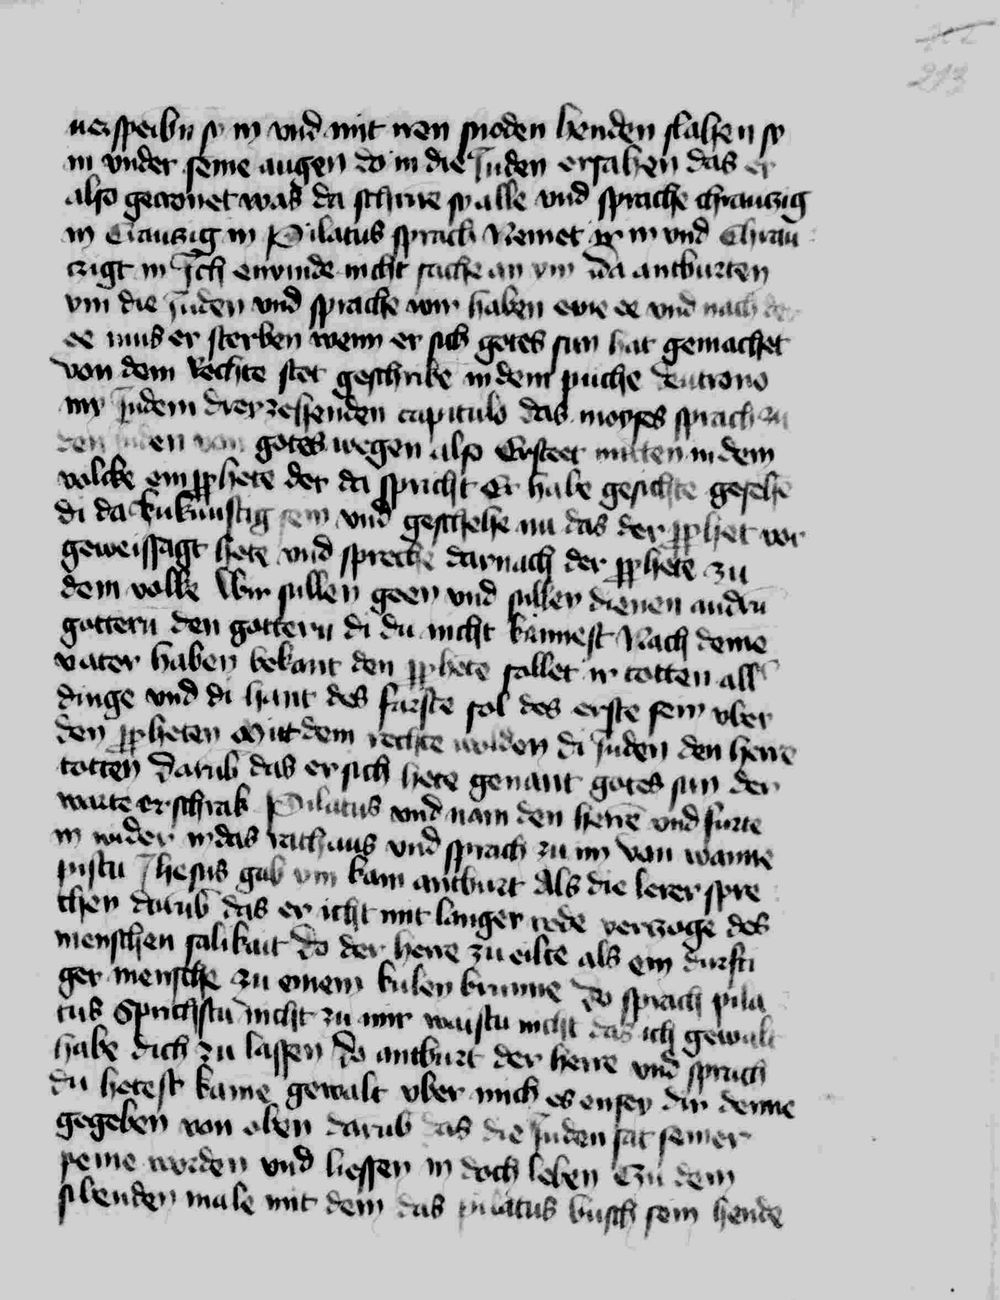 verspeibn sy in vnd mit iren snoden henden slahen sy
in vnder seine augen do in die Juden ersahen das er
also gecronet was da schrire sy alle vnd sprache chrauczig
in Crauczig in Pilatus sprach Nemet ir in vnd Chrau
czigt in Ich envinde nicht sache an ym da antburten
ym die Juden vnd sprache wir haben eyne ee vnd nach der
ee mus er sterben wenn er sich gotes sun hat gemachet
von dem Rechte stet geschribē in dem puche deutrono
my Jn dem dreyzehenden capitulo das moyses sprach zu
den Juden von gotes wegen also Ersteet mitten in dem
volcke ein pphete der da spricht Er habe gesichte gesehē
di da kukunftig sein vnd geschehe nu das der pphet vor
geweissagt hete vnd spreche darnach der pphete zu
dem volke Wir sullen geen vnd sullen dienen andrn
gottern den gottern di du nicht kannest Nach deine
vater haben bekant den pphete sollet ir totten all
dinge vnd di hant des furste sol des erste sein vber
den ppheten Mit dem rechte wolden di Juden den herre
totten darūb das er sich hete genant gotes sun der
warte erschrak Pilatus vnd nam den herrē vnd furte
in wider in das rathaus vnd sprach zu im von wanne
pistu Jhesus gab ym kain antburt Als die lerer spre
chen darūb das er icht mit langer rede verczoge des
menschen salikait do der herre zu eilte als ein dursti
ger mensche zu einem kulen brunne do sprach pila
tus Sprichstu nicht zu mir waistu nicht das ich gewalt
habe dich zu lassen do antburt der herre vnd sprach
du hetest kaine gewalt vber mich es ensey dir denne
gegeben von oben darūb das die Juden sat seiner
peine worden vnd liessen in doch leben Czu dem
sibenden male mit dem das pilatus busch sein hende